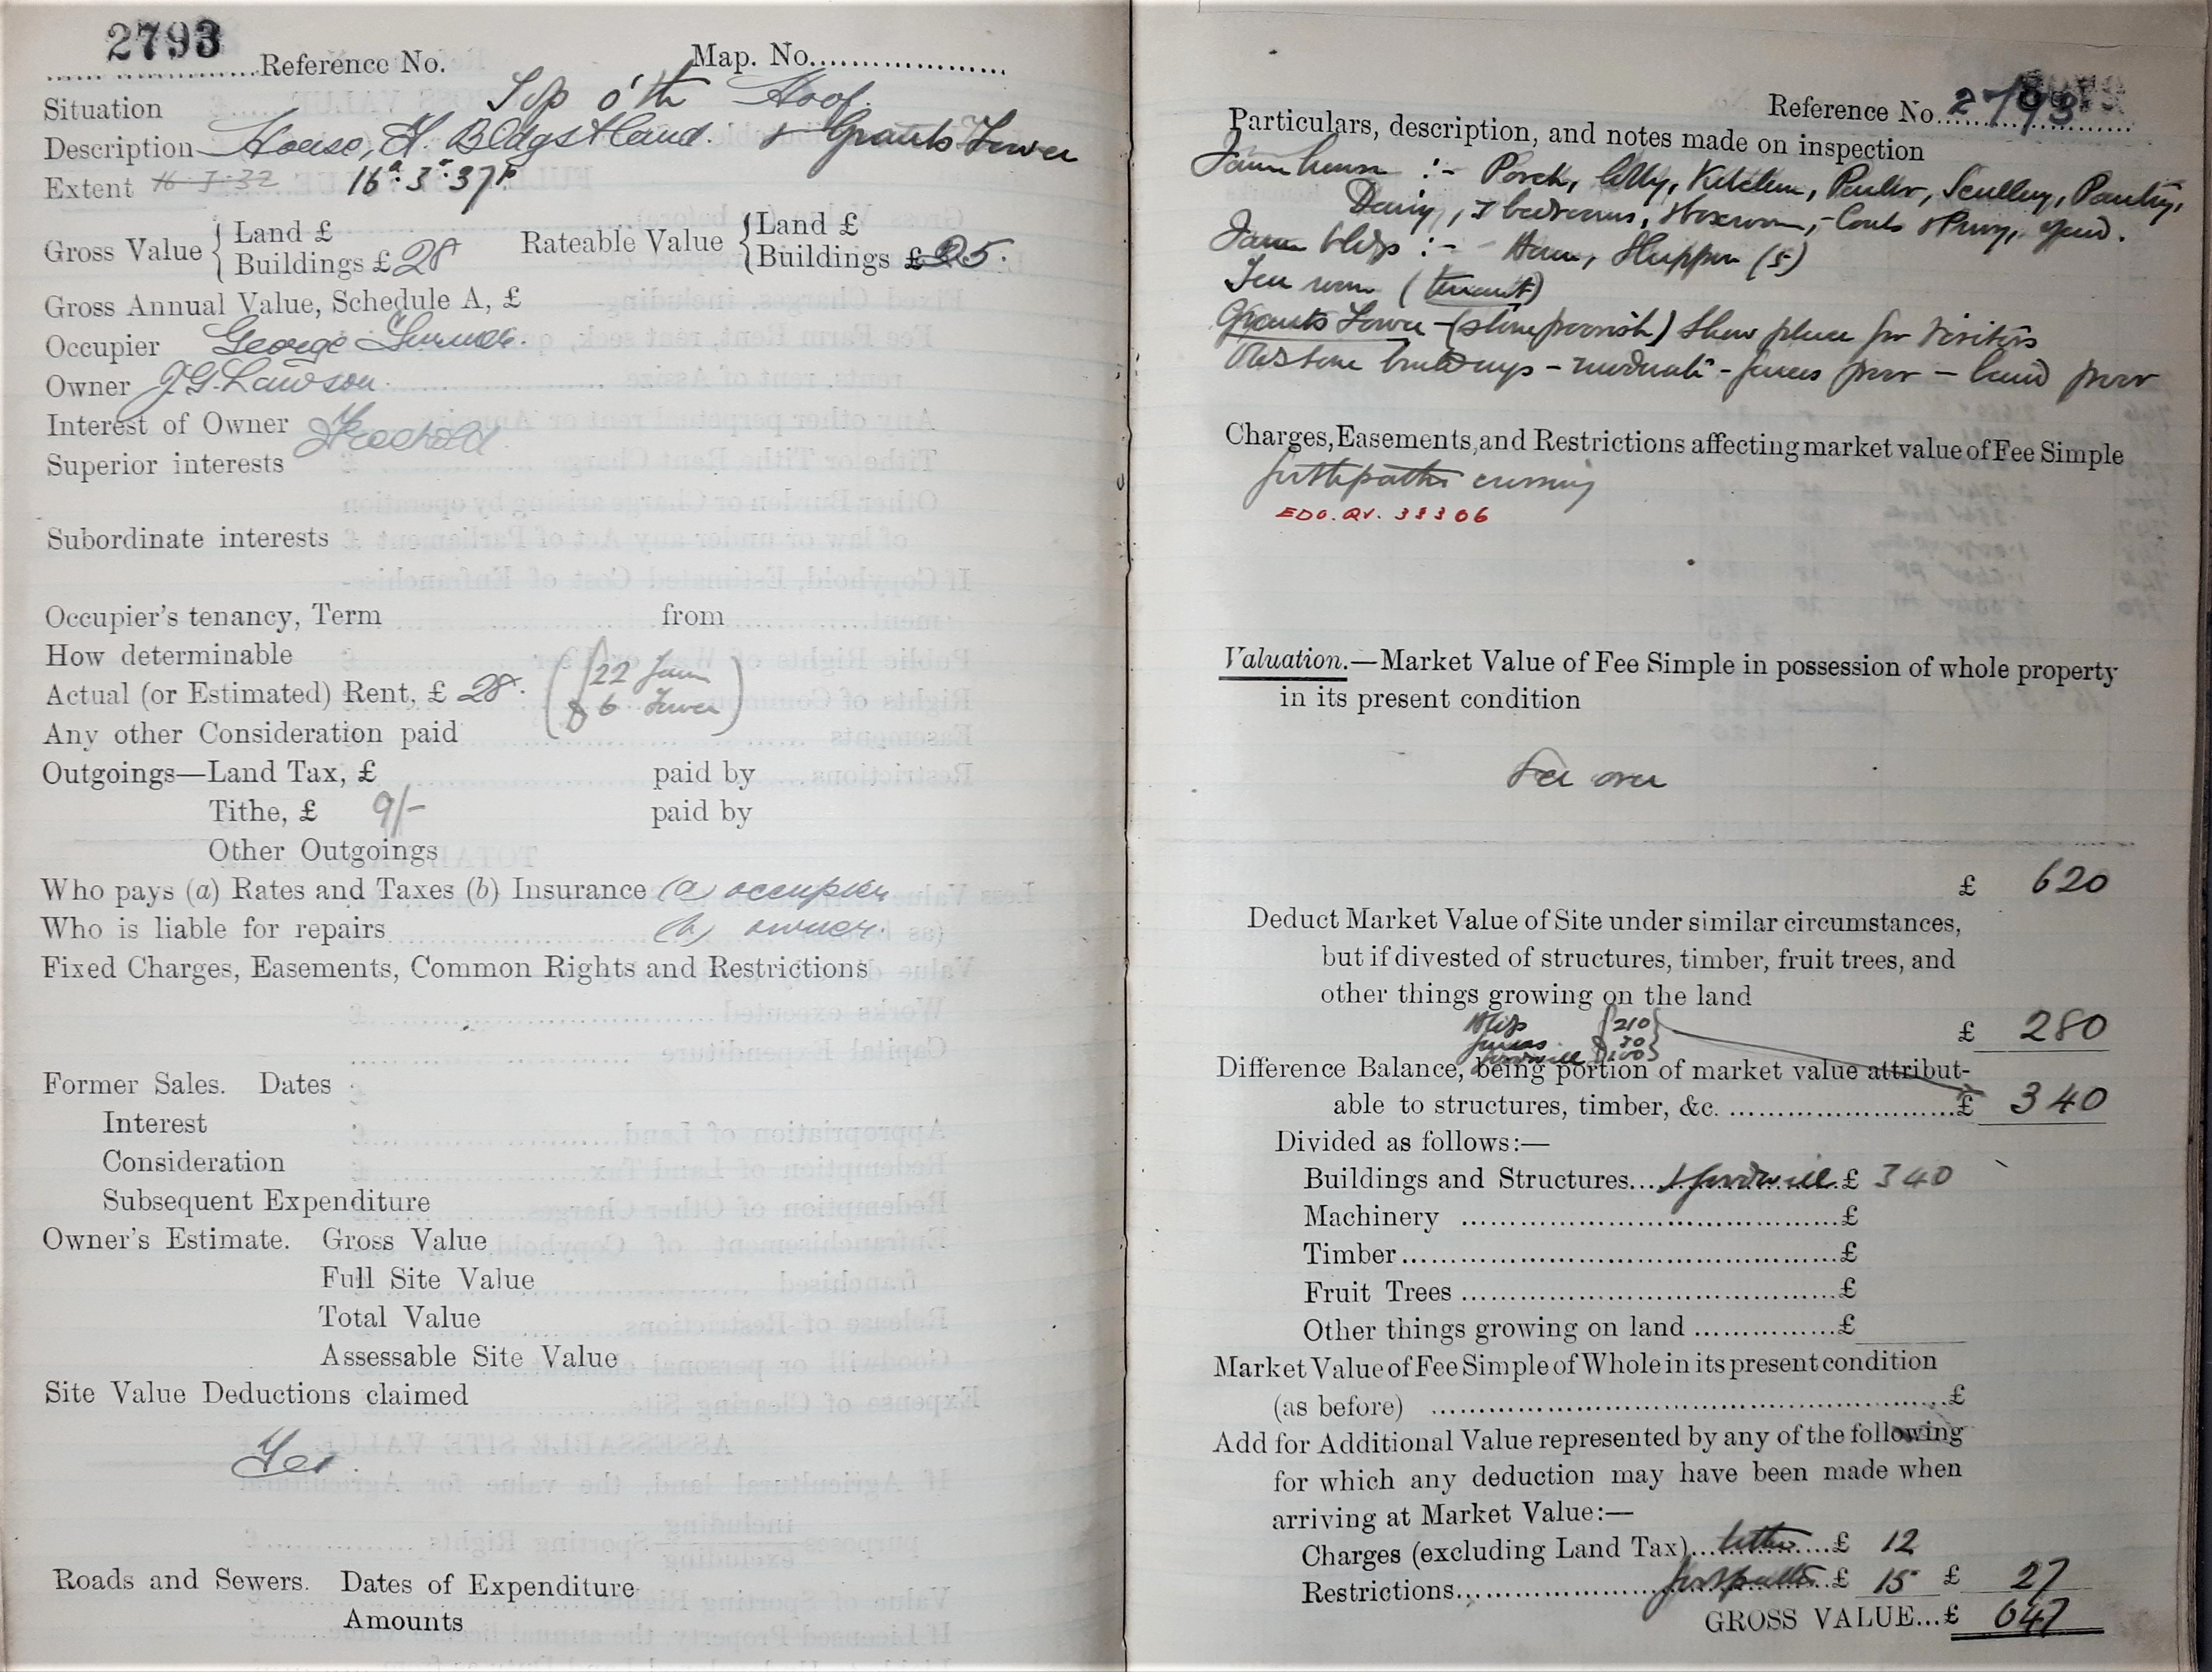 2793
Reference No. Map. No.
Situation Top o'th Hoof.
Description House, F. Bldgs & land. & Grants Tower
Extent 16.3.32 16a. 3r. 37p.
Gross Value { Land £
Buildings £ 28
Rateable Value { Land £
Buildings £ 25.
Gross Annual Value, Schedule A, £
Occupier George Turner.
Owner J.G. Lawson.
Interest of Owner Freehold
Superior interests
Subordinate interests
Occupier's tenancy, Term from
How determinable
Actual (or Estimated) Rent, £ 28. (£22 Farm
& 6 Tower)
Any other Consideration paid
Outgoings—Land Tax, £ paid by
Tithe, £ 9/- paid by
Other Outgoings
Who pays (a) Rates and Taxes (b) Insurance (a) occupier
Who is liable for repairs (b) owner.
Fixed Charges, Easements, Common Rights and Restrictions
Former Sales. Dates
Interest
Consideration
Subsequent Expenditure
Owner's Estimate. Gross Value
Full Site Value
Total Value
Assessable Site Value
Site Value Deductions claimed
Yes.
Roads and Sewers. Dates of Expenditure
Amounts
Reference No. 2793
Particulars, description, and notes made on inspection
Farmhouse :- Porch, lobby, Kitchen, Parlor, Scullery, Pantry,
Dairy, 3 bedrooms, Boxroom, Coals & Privy, yard.
Farm bldgs :- Barn, Shippon (5)
Tea room (tenant)
Grants Tower - ( ) Show place for Visitors
Old stone buildings - moderate - fences poor - land poor
Charges, Easements, and Restrictions affecting market value of Fee Simple
footpaths crossing
EDO. QV. 38306
Valuation.—Market Value of Fee Simple in possession of whole property
in its present condition
See over
£ 620
Deduct Market Value of Site under similar circumstances,
but if divested of structures, timber, fruit trees, and
other things growing on the land
£ 280
Bldgs 210
fences 30
goodwill 100
Difference Balance, being portion of market value attribut-
able to structures, timber, &c. £ 340
Divided as follows:—
Buildings and Structures & goodwill £ 340
Machinery £
Timber £
Fruit Trees £
Other things growing on land £
Market Value of Fee Simple of Whole in its present condition
(as before) £
Add for Additional Value represented by any of the following
for which any deduction may have been made when
arriving at Market Value:—
Charges (excluding Land Tax) tithe £ 12
Restrictions footpaths £ 15 £ 27
GROSS VALUE...£ 647